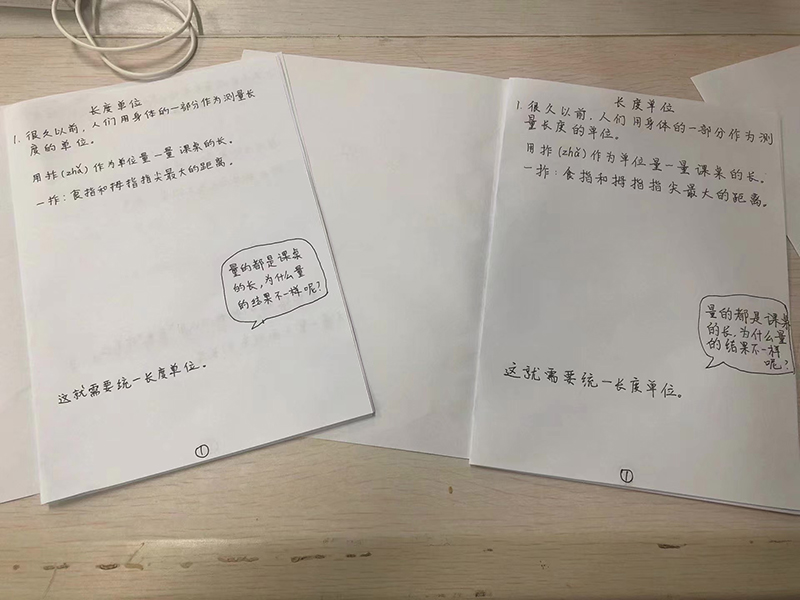 长度单位
1. 很久以前，人们用身体的一部分作为测量长
度的单位。
用拃(zhǎ)作为单位量一量课桌的长。
一拃：食指和拇指指尖最大的距离。
量的都是课桌
的长，为什么量
的结果不一样呢？
这就需要统一长度单位。
①
长度单位
1. 很久以前，人们用身体的一部分作为测
量长度的单位。
用拃(zhǎ)作为单位量一量课桌的长。
一拃：食指和拇指指尖最大的距离。
量的都是课桌
的长，为什么量
的结果不一样
呢？
这就需要统一长度单位。
①